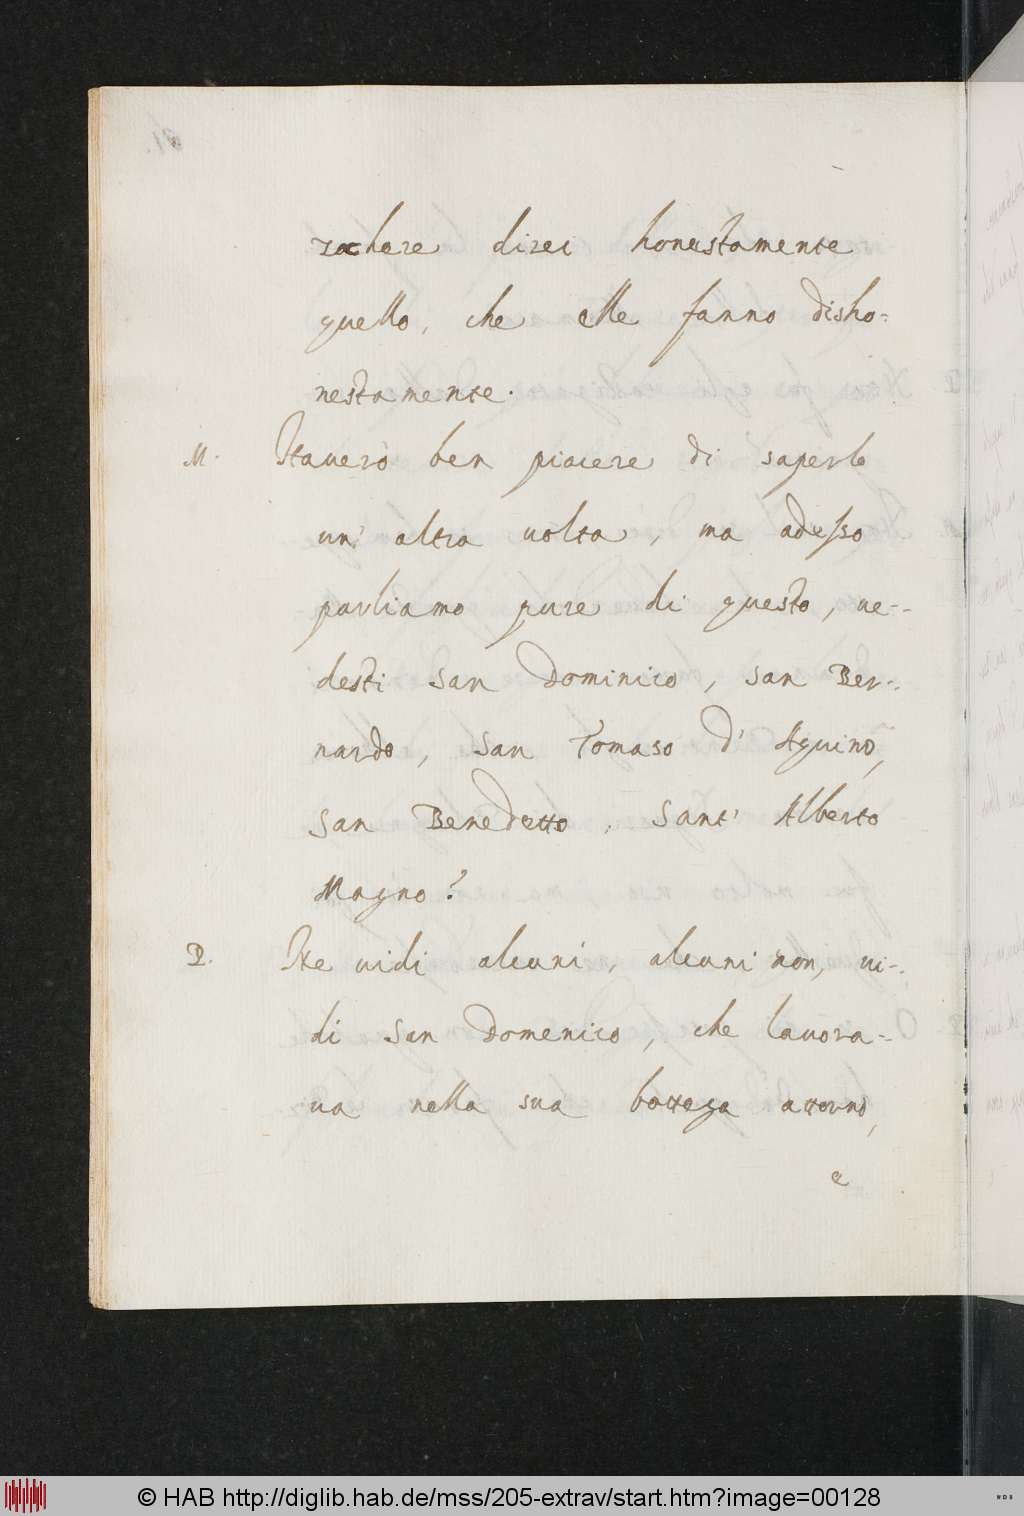 zochere direi honestamente
quello, che elle fanno disho-
nestamente.
M. Haverò ben piacere di saperlo
un' altra uolta, ma adesso
parliamo pure di questo, ue-
desti San Dominico, San Ber-
nardo, San Tomaso d' Aquino,
San Benedetto, Sant' Alberto
Magno?
P. He uidi alcuni, alcuni non, ui-
di San Domenico, che lauora-
ua nella sua bottega attorno,
e
© HAB http://diglib.hab.de/mss/205-extrav/start.htm?image=00128